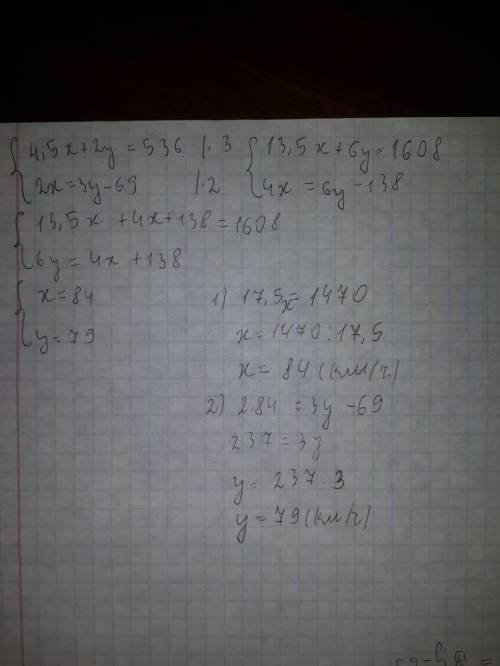 4,5x+2y=536 |·3 13,5x+6y=1608
2x=3y-69 |·2 4x=6y-138
13,5x+4x+138=1608
6y=4x+138
x=84
y=79
1) 17,5x=1470
x=1470:17,5
x=84(км/ч)
2) 2·84=3y-69
237=3y
y=237:3
y=79(км/ч)